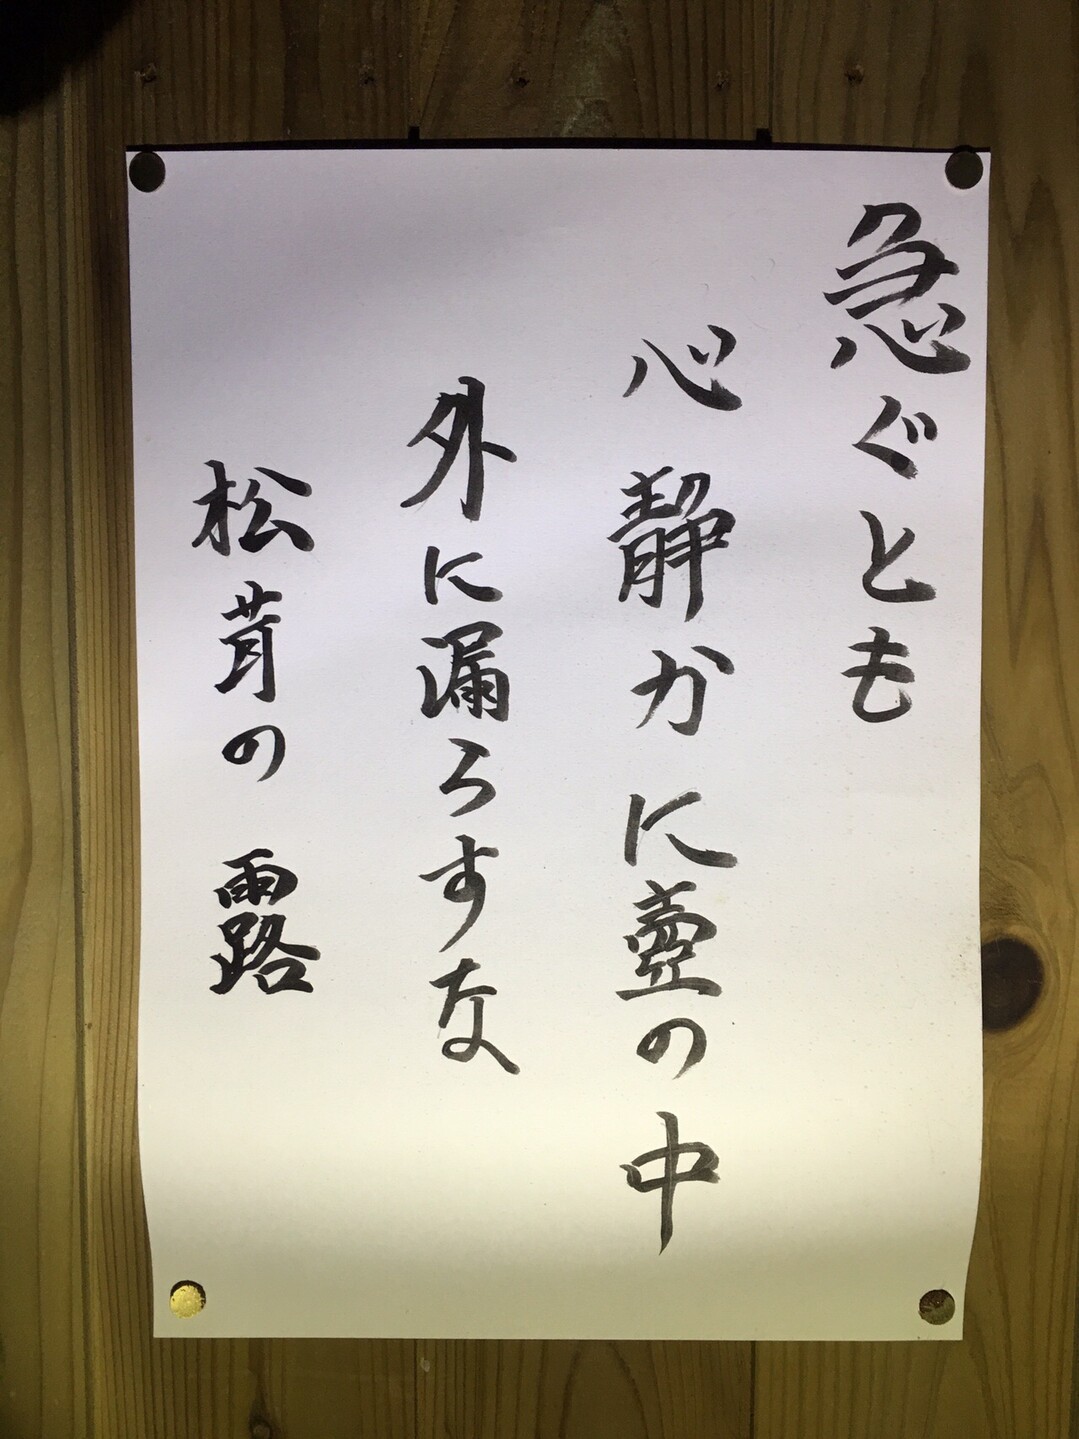 急ぐとも
心静かに壷の中
外に漏らすな
松茸の露